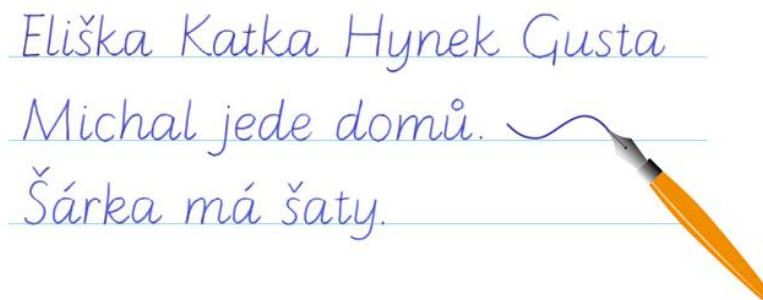 Eliška Katka Hynek Gusta
Michal jede domů.
Šárka má šaty.